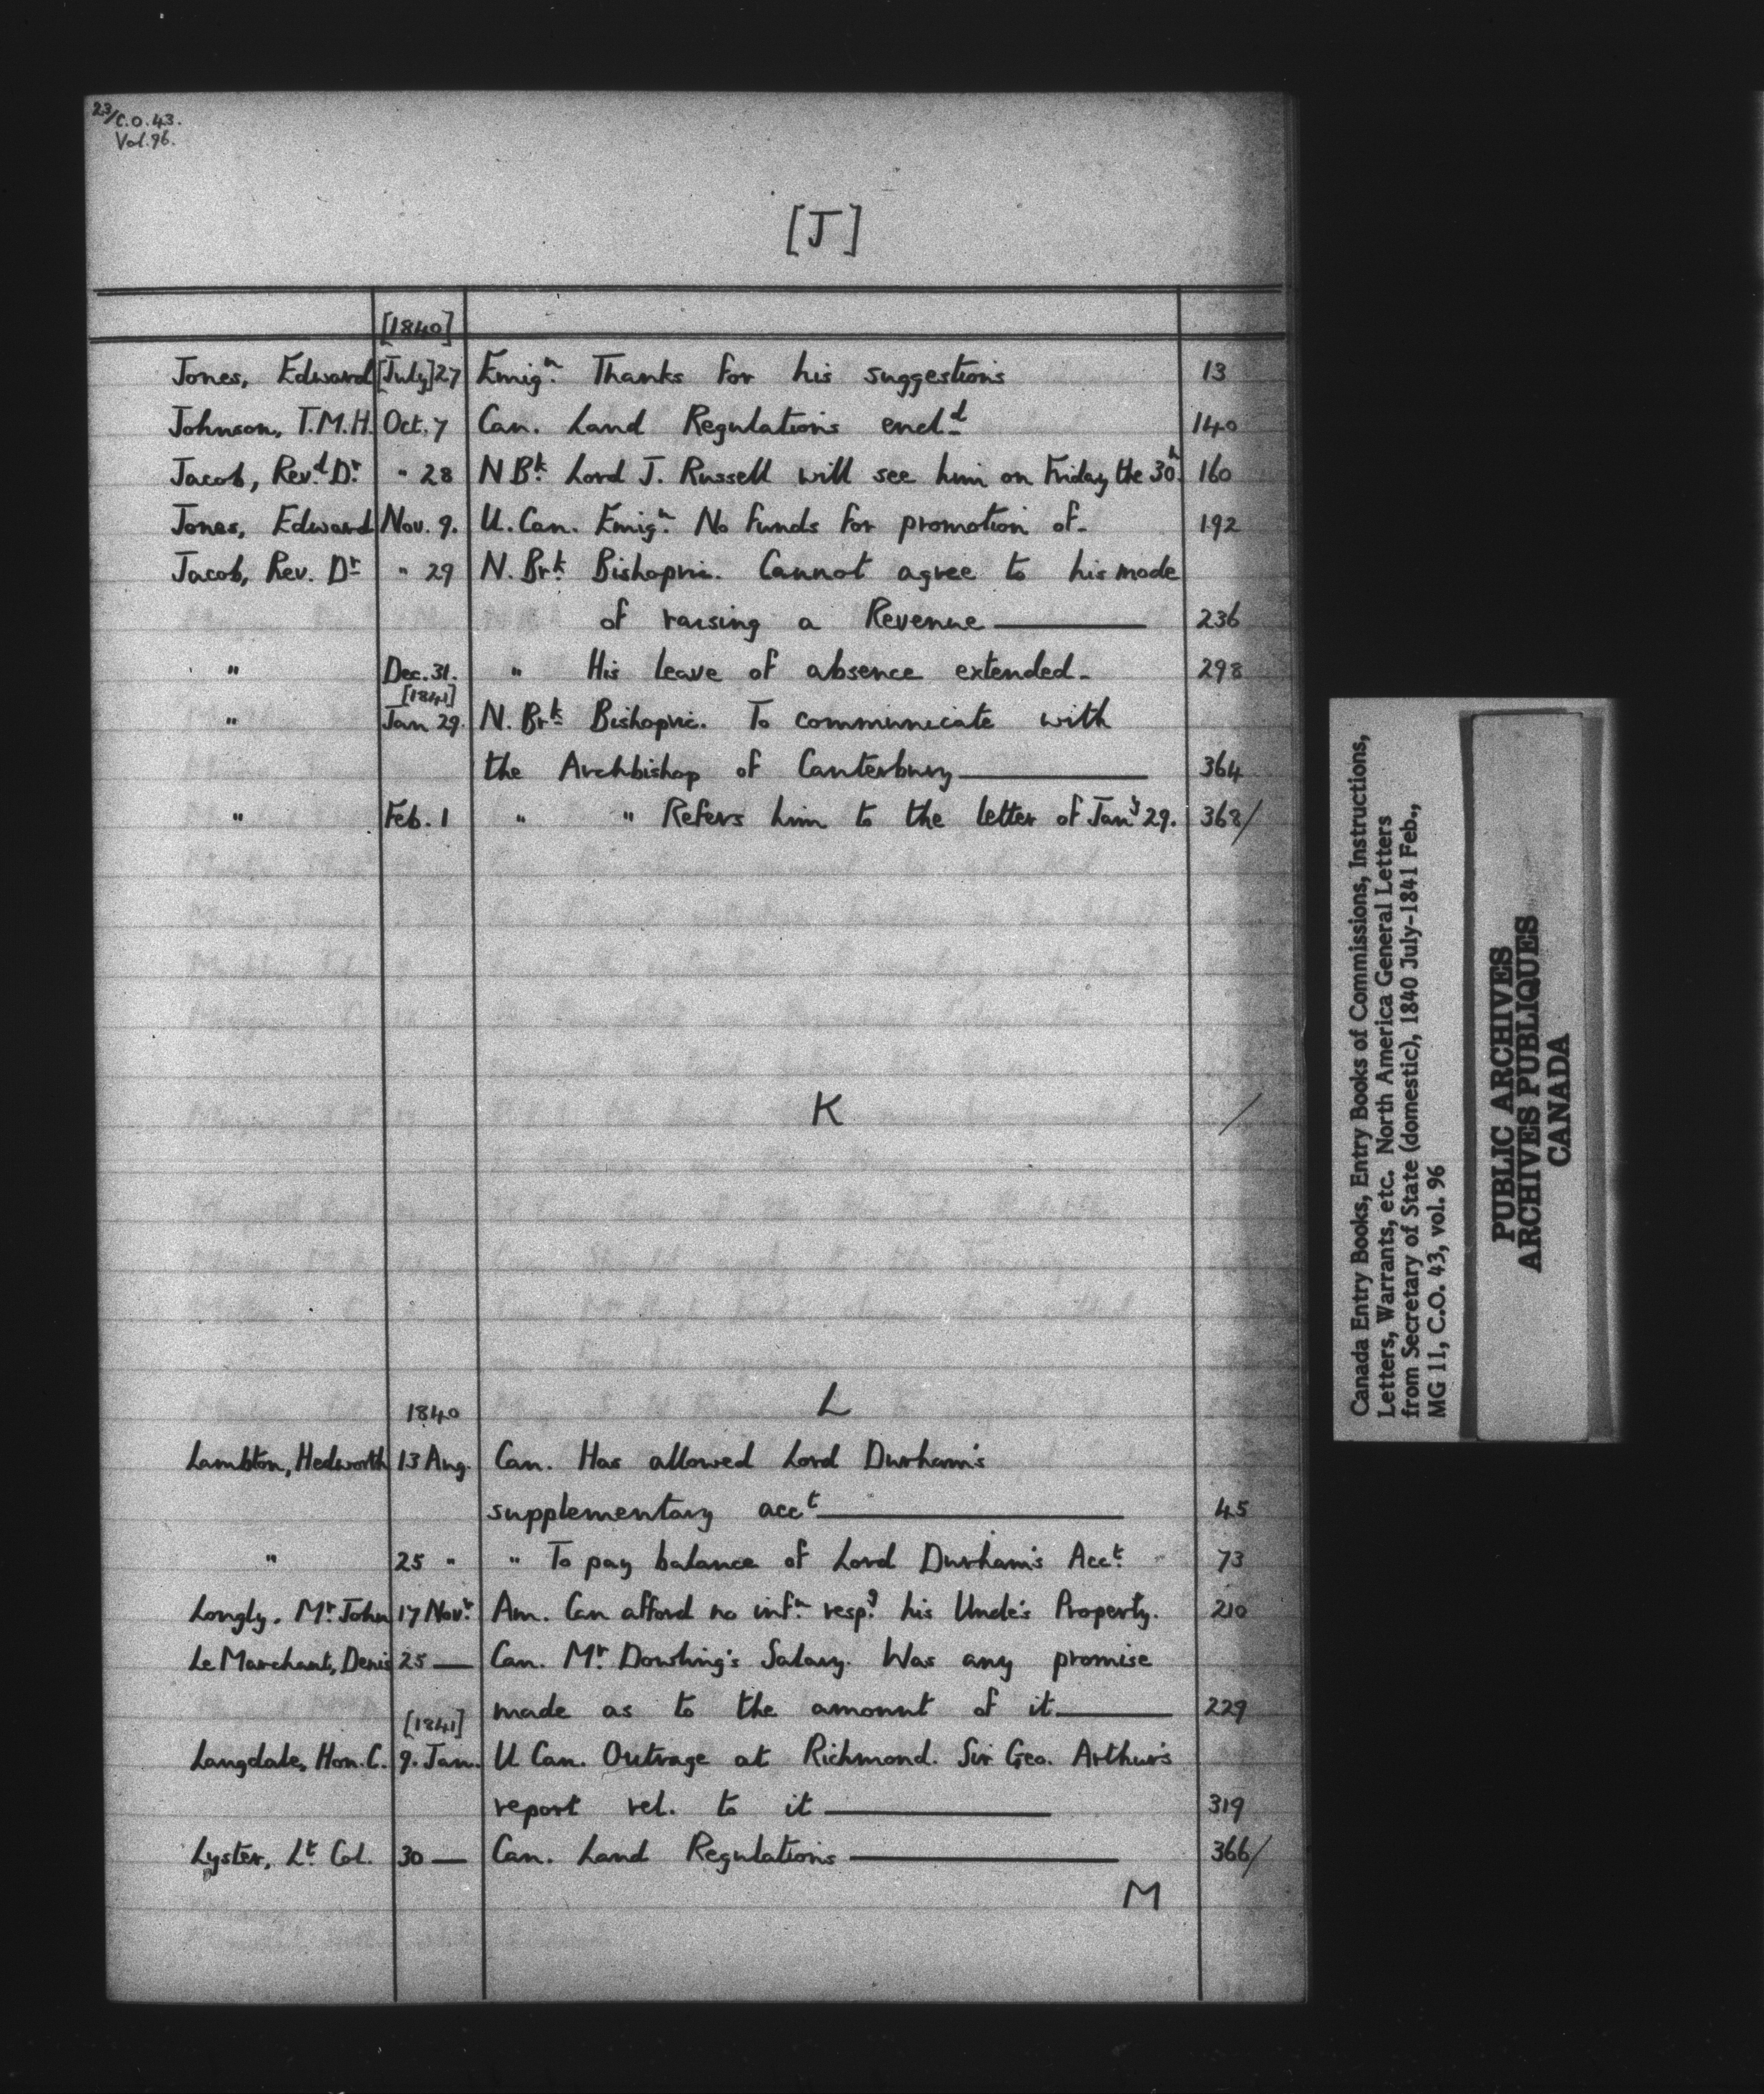 23/C.O.43.
Vol.96.
[J]
[1840]
Jones, Edward [July] 27 Emigⁿ. Thanks for his suggestions 13
Johnson, T.M.H. Oct. 7 Can. Land Regulations enclᵈ 140
Jacob, Revᵈ Dʳ. " 28 N Bᵏ. Lord J. Russell will see him on Friday the 30ʰ. 160
Jones, Edward Nov. 9. U. Can. Emigⁿ. No funds for promotion of- 192
Jacob, Rev. Dʳ " 29 N. Brᵏ. Bishopric. Cannot agree to his mode
of raising a Revenue 236
" Dec. 31. " His leave of absence extended- 298
[1841]
" Jan 29. N. Brᵏ Bishopric. To communicate with
the Archbishop of Canterbury 364
" Feb. 1 " " Refers him to the letter of Janʸ 29. 368/
K /
1840 L
Lambton, Hedworth 13 Aug. Can. Has allowed Lord Durham's
supplementary accᵗ 45
" 25 " " To pay balance of Lord Durham's Accᵗ. 73
Longly, Mʳ John 17 Novʳ. Am. Can afford no infⁿ. respᵍ. his Uncle's Property. 210
Le Marchant, Denis 25 — Can. Mʳ. Dowling's Salary. Was any promise
made as to the amount of it 229
[1841]
Langdale, Hon. C. 9. Jan. U Can. Outrage at Richmond. Sir Geo. Arthur's
report rel. to it 319
Lyster, Lᵗ. Col. 30 — Can. Land Regulations 366/
M
Canada Entry Books, Entry Books of Commissions, Instructions,
Letters, Warrants, etc. North America General Letters
from Secretary of State (domestic), 1840 July-1841 Feb.,
MG 11, C.O. 43, vol. 96
PUBLIC ARCHIVES
ARCHIVES PUBLIQUES
CANADA